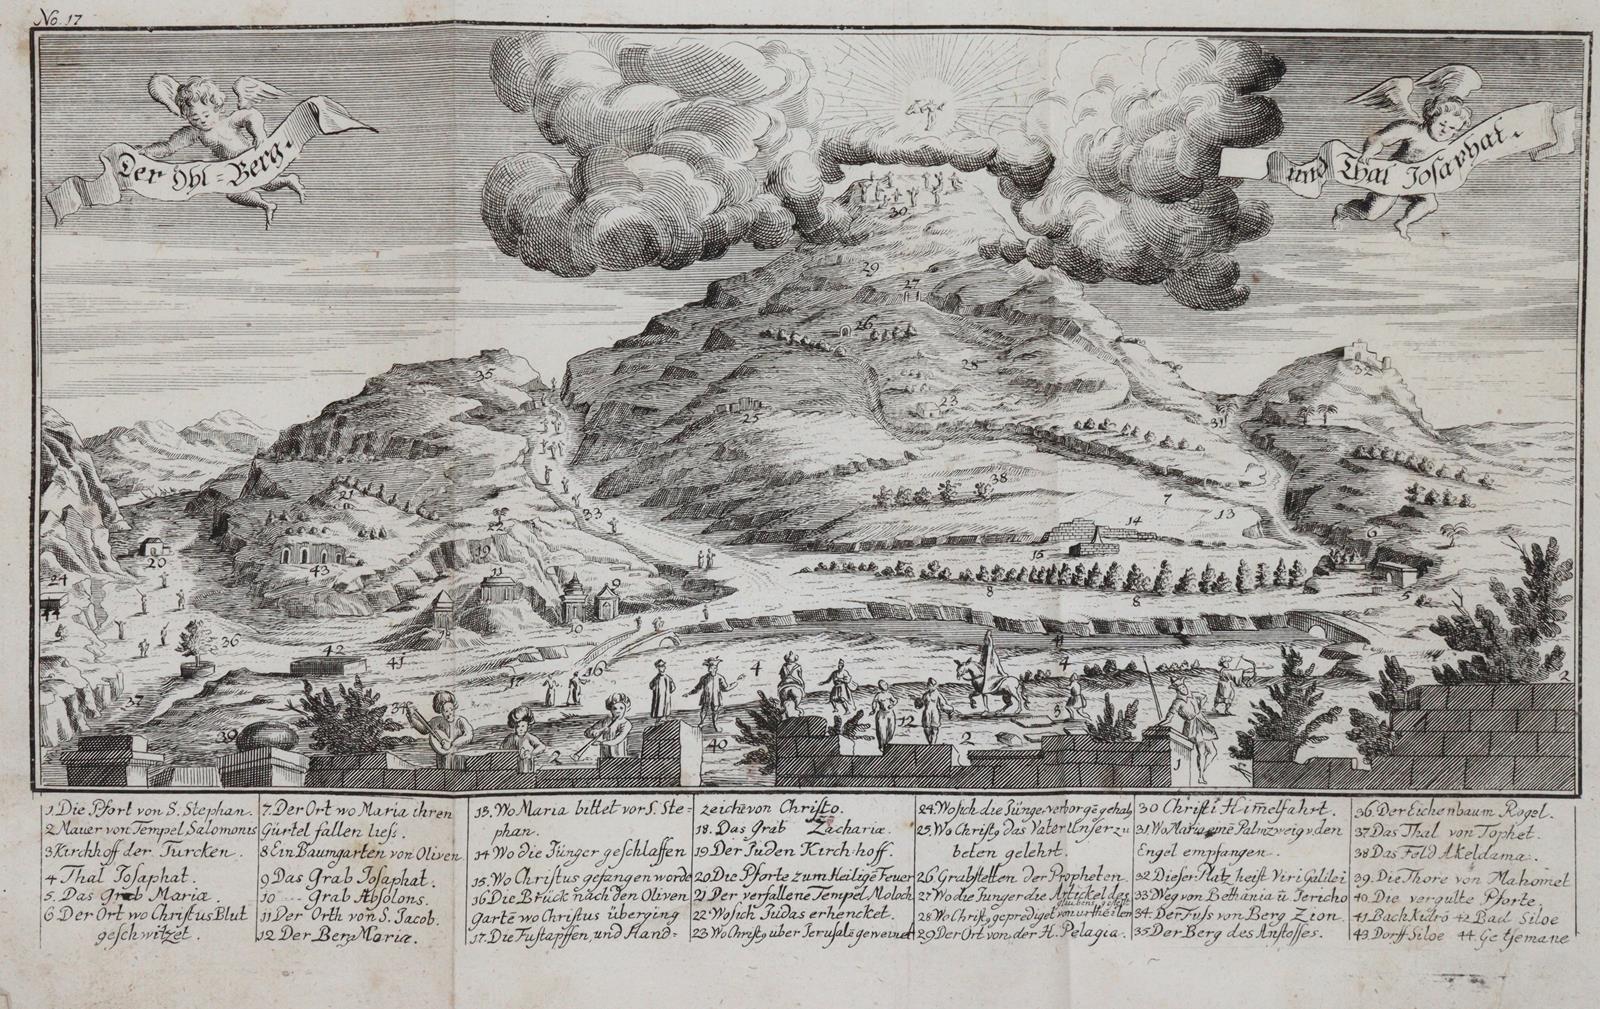 No. 17
Der Ohl=Berg.
und Thal Josaphat.
1. Die Pfort von S. Stephan.
2 Mauer von Tempel Salomonis
3 Kirchhoff der Turcken.
4 Thal Josaphat.
5. Das Grab Mariæ.
6 Der Ort wo Christus Blut
geschwitzet.
7. Der Ort wo Maria ihren
Gürtel fallen liess.
8 Ein Baumgarten von Oliven
9 Das Grab Josaphat.
10 --- Grab Absolons.
11 Der Orth von S. Jacob.
12 Der Berg Moria.
13. Wo Maria bittet vor S. Ste-
phan.
14 Wo die Jünger geschlaffen
15. Wo Christus gefangen worde
16 Die Brück nach den Oliven
garte wo Christus überging
17. Die Fustapffen, und Hand=
zeiche von Christo.
18. Das Grab Zachariæ.
19 Der Juden Kirch-hoff.
20 Die Pforte zum Heilige Feuer
21 Der verfallene Tempel Moloch
22 Wo sich Judas erhencket.
23 Wo Christ9 uber Jerusalē geweinet
24. Wo sich die Jünger verborgē gehab
25 Wo Christ9 das Vater Unser zu
beten gelehrt.
26 Grabstetten der Propheten.
27 Wo die Junger die Artickel des
Glaubens gesetzt
28 Wo Christ9 geprediget von urtheilen
29 Der Ort von der H. Pelagia.
30 Christi Himelfahrt.
31 Wo Maria eine Palmzweig v. den
Engel empfangen.
32 Dieser Platz heist Viri Galilei
33 Weg von Bethania ü Jericho
34 Der Fuss von Berg Zion.
35 Der Berg des Anstosses.
36 Der Eichenbaum Rogel.
37 Das Thal von Tophet.
38 Das Feld Akeldama.
39. Die Thore von Mahomet
40. Die vergulte Pforte,
41 Bach Kidrō 42 Bad Siloe
43. Dorff Siloe 44 Getsemane